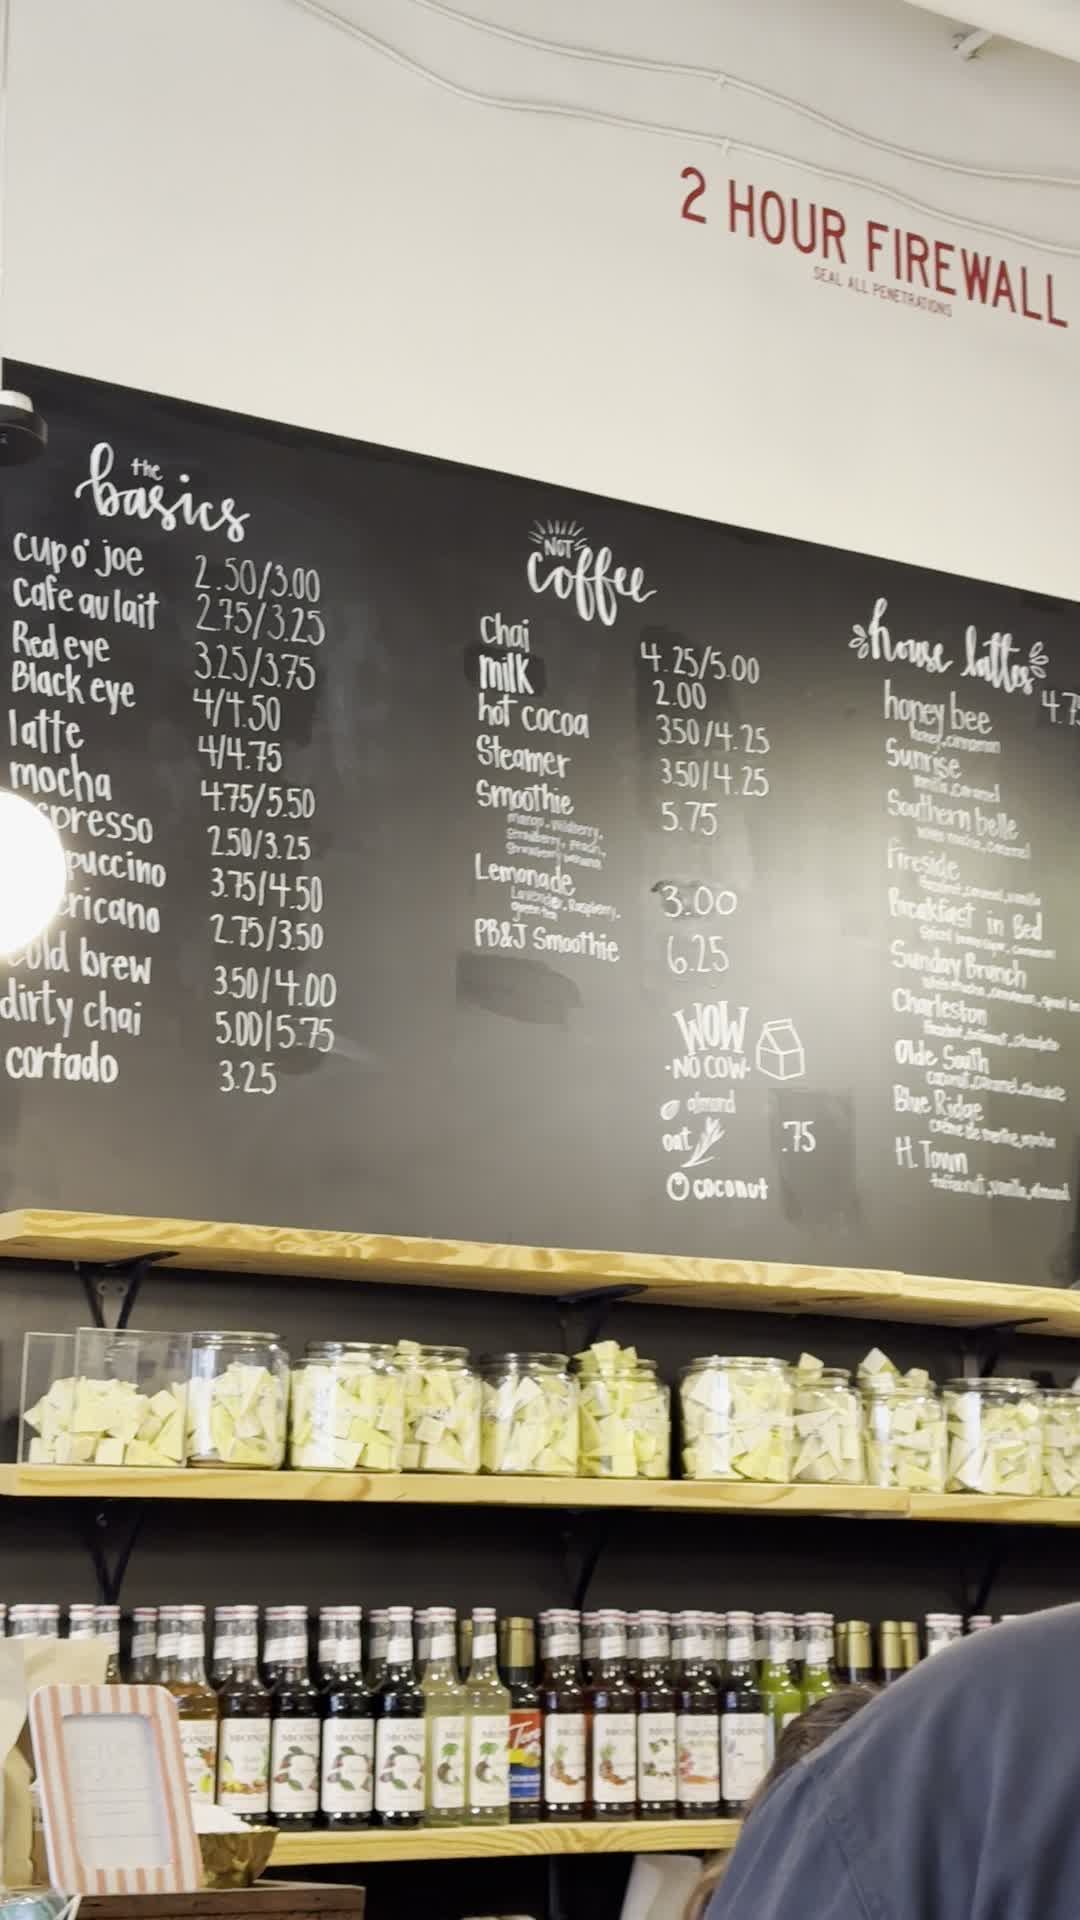 2 HOUR FIREWALL
SEAL ALL PENETRATIONS
the
basics
cup o' joe 2.50/3.00
cafe au lait 2.75/3.25
Red eye 3.25/3.75
Black eye 4/4.50
latte 4/4.75
mocha 4.75/5.50
spresso 2.50/3.25
puccino 3.75/4.50
ericano 2.75/3.50
cold brew 3.50/4.00
dirty chai 5.00/5.75
cortado 3.25
NOT
coffee
Chai 4.25/5.00
milk 2.00
hot cocoa 350/4.25
Steamer 3.50/4.25
Smoothie 5.75
mango, wildberry,
strawberry, peach,
strawberry banana
Lemonade 3.00
Lavender, Raspberry,
green tea
PB&J Smoothie 6.25
WOW
·NO COW·
almond
oat .75
coconut
house lattes 4.75
honey bee
honey, cinnamon
Sunrise
vanilla, caramel
Southern belle
white mocha, caramel
Fireside
hazelnut, caramel, vanilla
Breakfast in Bed
Sunday Brunch
Charleston
Olde South
coconut, caramel, chocolate
Blue Ridge
crème de menthe, mocha
H. Town
toffeenut, vanilla, almond
MONIN
Torani